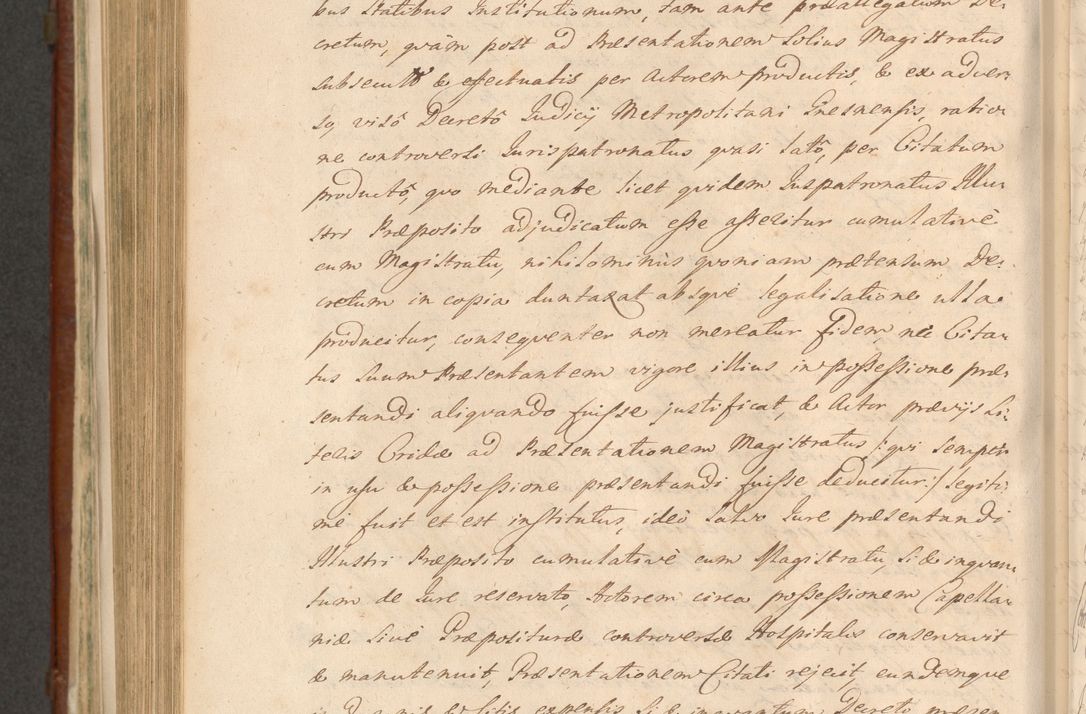 bus Statibus Institutionum, tam ante præallegatum De:
cretum, qvàm post ad Præsentationem Solius Magistratus
subsecutis & effectuatis per Actorem productis, & ex adver:
so, visô Decretô Judicij Metropolitani Gnesnensis, ratio:
ne controversi Jurispatronatus qvasi latô, per Citatum
productô, qvo mediante licet qvidem Juspatronatus Illu:
stri Præposito adjudicatum esse asseritur cumulativè
cum Magistratu, nihilominùs qvoniam prætensum De:
cretum in copia duntaxat absqvè legalisatione ulla
producitur, conseqventer non mereatur fidem, nec Cita:
tus Suum Præsentantem vigore illius in possessione præ:
sentandi aliqvando fuisse justificat, & Actor prævijs Li:
telis Cridæ ad Præsentationem Magistratus /: qvi semper
in usu & possessione præsentandi fuisse deducitur :/ legiti:
mè fuit et est institutus, ideò Salvo Jure præsentandi
Illustri Præposito cumulativè cum Magistratu, Si & inqvan:
tum de Jure reservato, Actorem circa possessionem Capella:
niæ Sivè Præposituræ controversæ Hospitalis conservavit
& manutenuit, Præsentationem Citati rejecit, eundemque
in Damnis & Litis expensis Si & inqvantum Decretô præsen